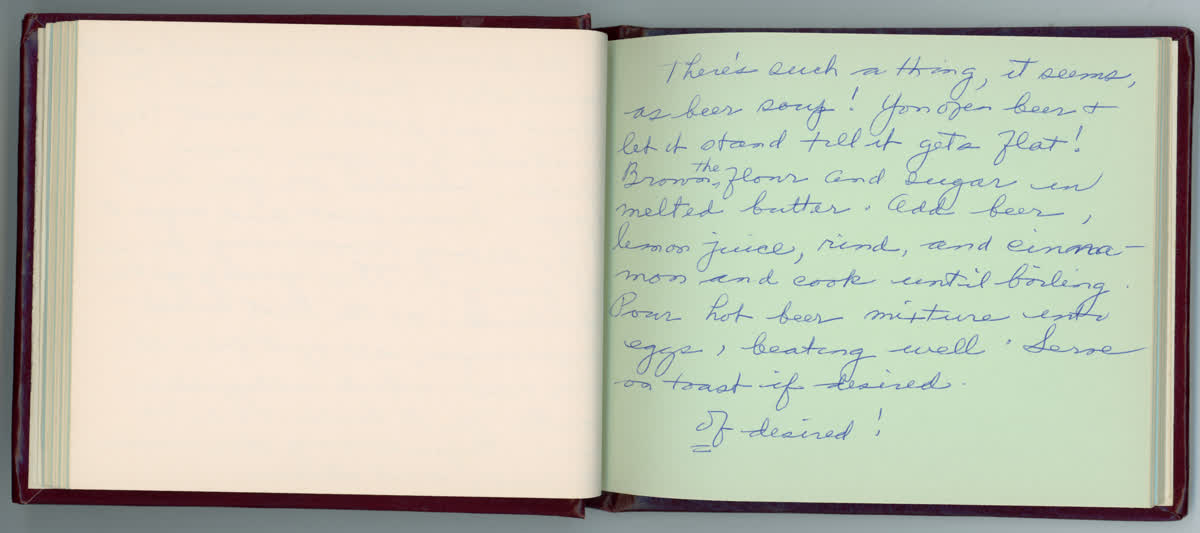 There's such a thing, it seems,
as beer soup! You open beer +
let it stand till it gets flat!
Brown the flour and sugar in
melted butter. Add beer,
lemon juice, rind, and cinna-
mon and cook until boiling.
Pour hot beer mixture into
eggs, beating well. Serve
on toast if desired.
If desired!